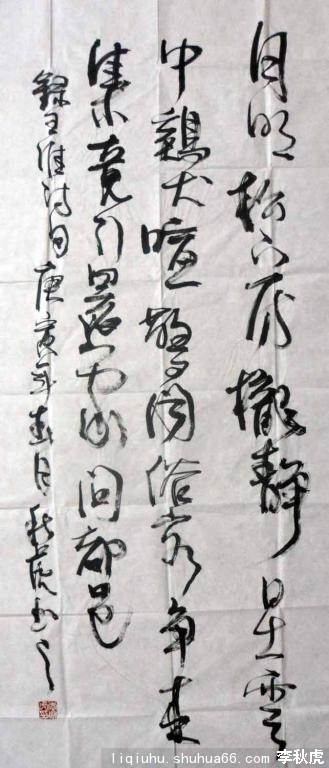 月明松下房櫳靜日出雲
中鷄犬喧驚聞俗客爭來
集竞引還家问都邑
錄王維詩句庚寅年春月秋虎书之
liqiuhu.shuhua66.com 李秋虎